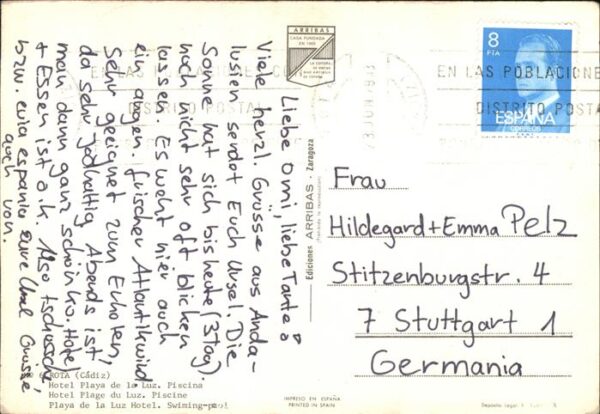 Liebe Omi, liebe Tante
Viele herzl. Grüsse aus Anda-
lusien sendet Euch Ursel. Die
Sonne hat sich bis heute (3 Tag).
noch nicht sehr oft blicken
lassen. Es weht hier auch
ein angen. frischer Atlantikwind
Sehr geeignet zum Erholen,
da sehr jodhaltig. Abends ist
man dann ganz schön k.o. Hotel
+ Essen ist o.k. Also tschüss
bzw. viva espania eure Ursel Grüsse
auch von.
ROTA (Cádiz)
Hotel Playa de la Luz. Piscina
Hotel Plage du Luz. Piscine
Playa de la Luz Hotel. Swiming-pool
ARRIBAS
CASA FUNDADA
EN 1905
Ediciones ARRIBAS - Zaragoza
(Prohibida la reproducción)
IMPRESO EN ESPAÑA
PRINTED IN SPAIN
8
PTA
ESPAÑA
CORREOS
EN LAS POBLACIONE
DISTRITO POSTA
Frau
Hildegard+Emma Pelz
Stitzenburgstr. 4
7 Stuttgart 1
Germania
Depósito Legal